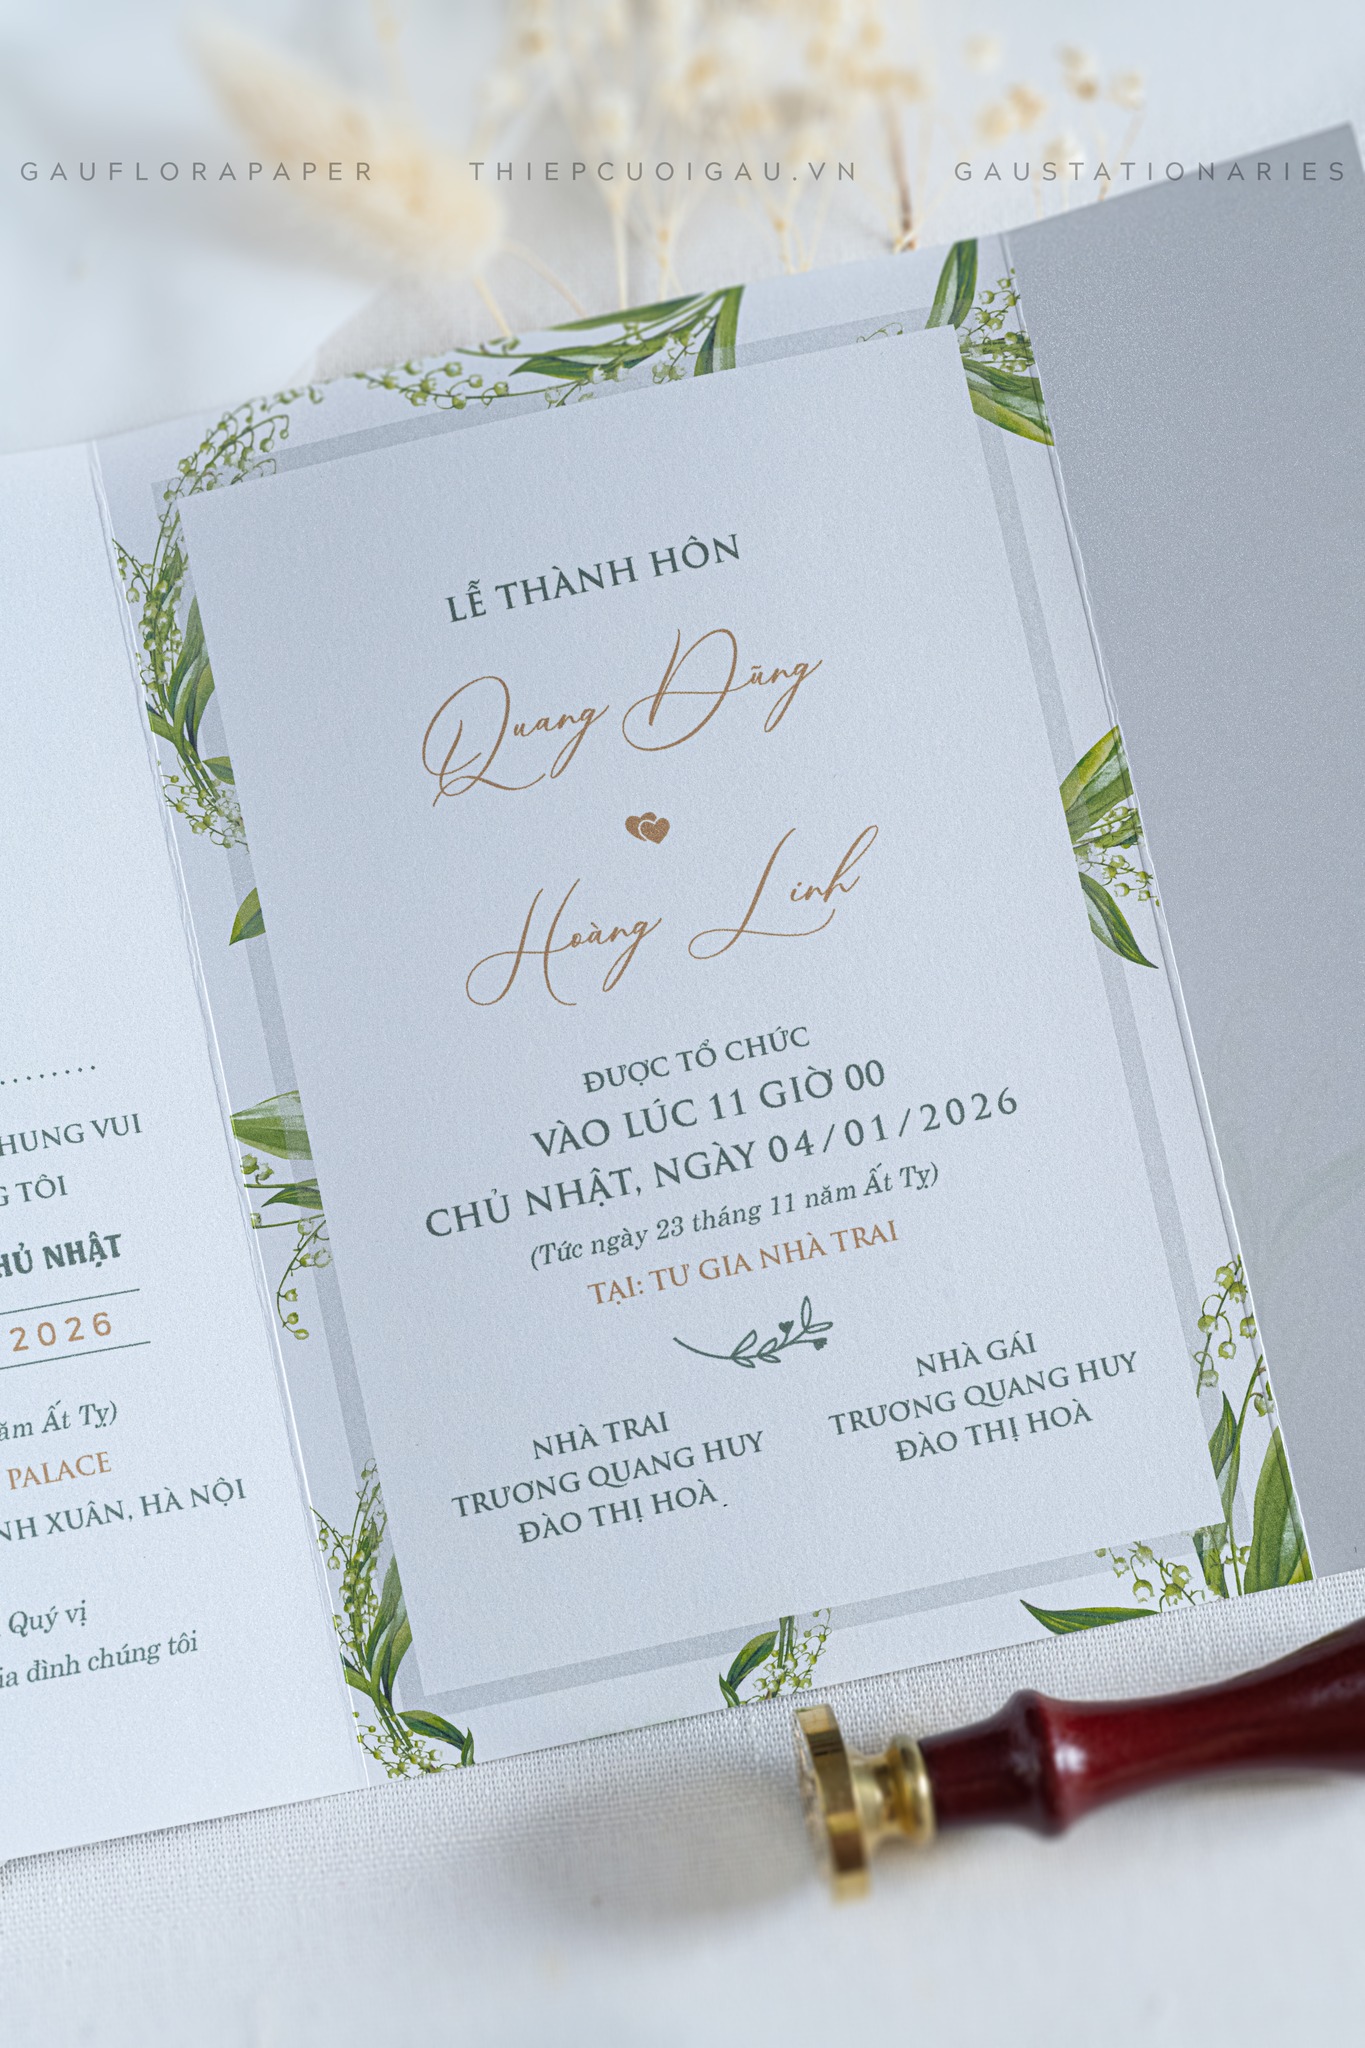 GAUFLORAPAPER THIEPCUOIGAU.VN GAUSTATIONARIES
HUNG VUI
G TÔI
HỦ NHẬT
2026
ăm Ất Tỵ)
PALACE
NH XUÂN, HÀ NỘI
Quý vị
ia đình chúng tôi
LỄ THÀNH HÔN
Quang Dũng
Hoàng Linh
ĐƯỢC TỔ CHỨC
VÀO LÚC 11 GIỜ 00
CHỦ NHẬT, NGÀY 04/01/2026
(Tức ngày 23 tháng 11 năm Ất Tỵ)
TẠI: TƯ GIA NHÀ TRAI
NHÀ TRAI
TRƯƠNG QUANG HUY
ĐÀO THỊ HOÀ .
NHÀ GÁI
TRƯƠNG QUANG HUY
ĐÀO THỊ HOÀ